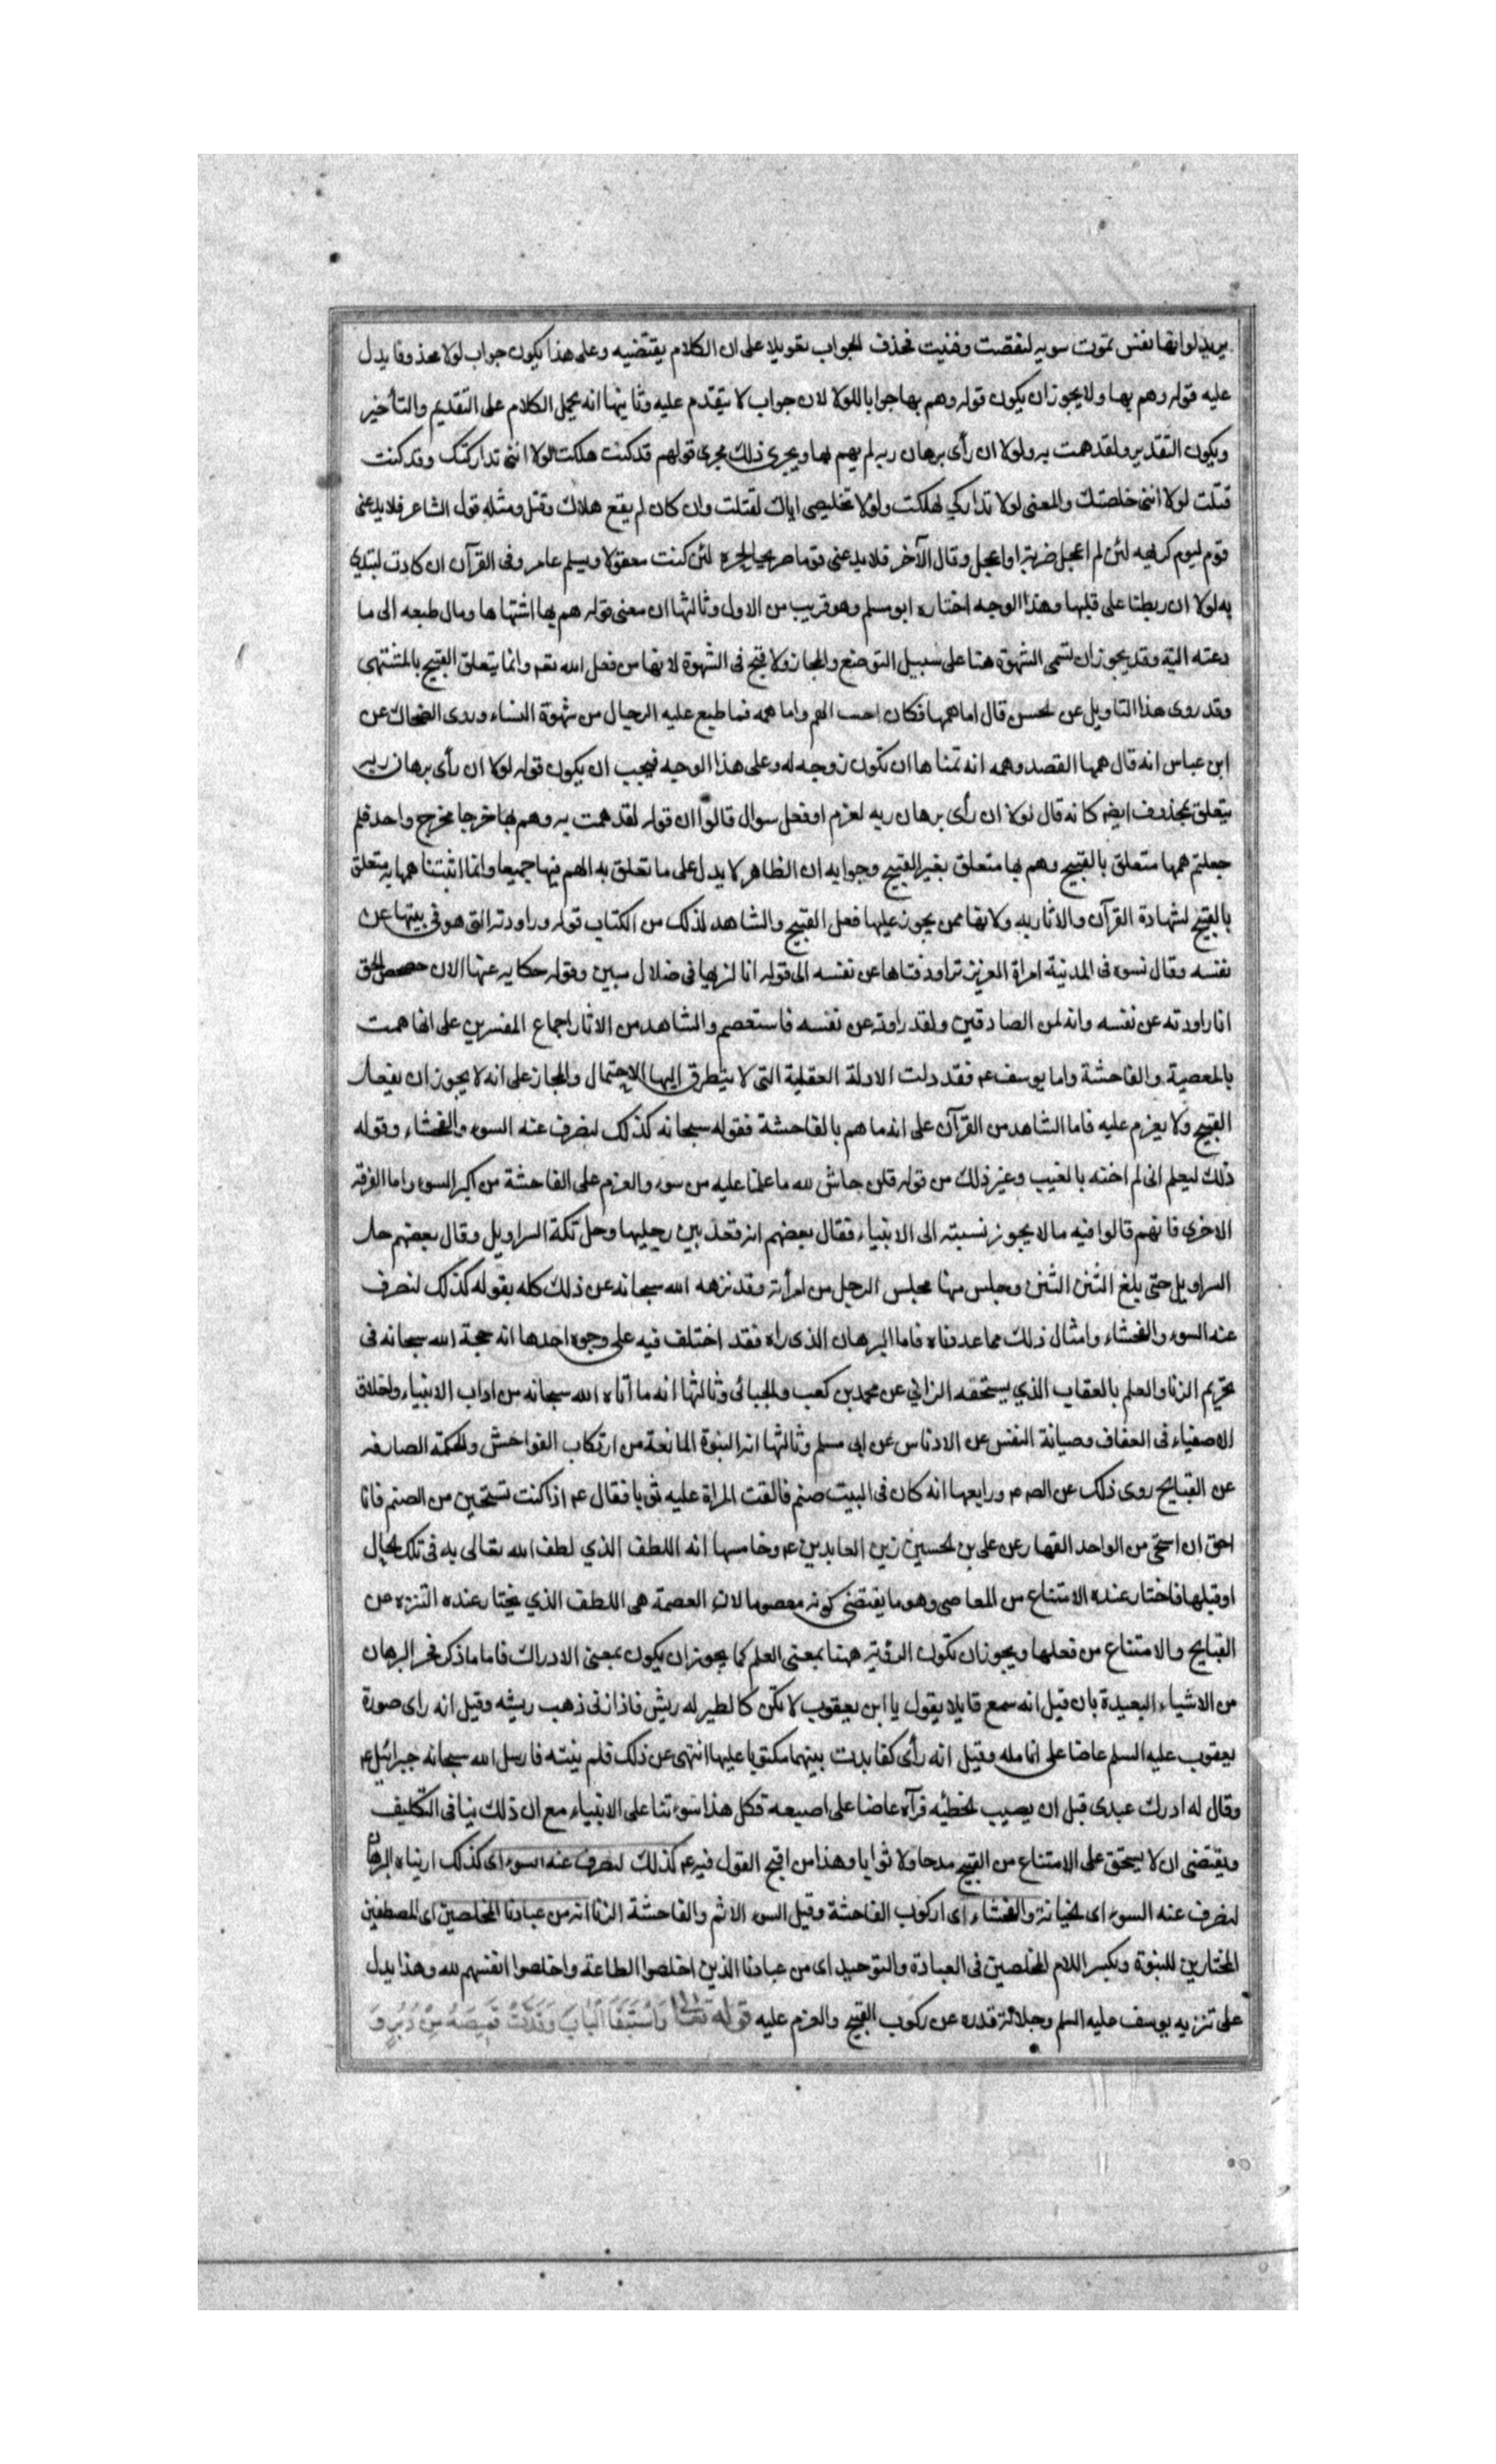 يريد لو انها نفس تموت سوية لنقصت وفنيت فحذف الجواب تعويلا على ان الكلام يقتضيه وعلى هذا يكون جواب لولا محذوفا يدل
عليه قوله وهم بها ولا يجوز ان يكون قوله وهم بها جوابا للولا لان جواب لا يتقدم عليه وثانيها انه يحمل الكلام على التقديم والتأخير
ويكون التقدير ولقد همت به ولولا ان رأى برهان ربه لم يهم بها ويجرى ذلك مجرى قولهم قد كنت هلكت لولا انى تداركتك وقد كنت
قتلت لولا انى خلصتك والمعنى لولا تداركي لهلكت ولولا تخليصى اياك لقتلت وان كان لم يقع هلاك وقتل ومثله قول الشاعر فلا يدعنى
قوم ليوم كريهة لئن لم اعجل ضربة او اعجل وقال الآخر فلا يدعنى قوما صريحا لحرة لئن كنت مقتولا ويسلم عامر وفى القرآن ان كادت لتبدي
به لولا ان ربطنا على قلبها وهذا الوجه اختاره ابو مسلم وهو قريب من الاول وثالثها ان معنى قوله هم بها اشتهاها ومال طبعه الى ما
دعته اليه وقد يجوز ان تسمى الشهوة هما على سبيل التوضع والمجاز ولا قبح فى الشهوة لانها من فعل الله تعه وانما يتعلق القبيح بالمشتهى
وقد روى هذا التاويل عن الحسن قال اما همها فكان اخبث الهم واما همه فما طبع عليه الرجال من شهوة النساء وروى الضحاك عن
ابن عباس انه قال همها القصد وهمه انه تمناها ان تكون زوجه له وعلى هذا الوجه فيجب ان يكون قوله لولا ان رأى برهان ربه
يتعلق بمحذوف ايضه كانه قال لولا ان رأى برهان ربه لعزم او فعل سوال قالوا ان قوله لقد همت به وهم بها خرجا مخرج واحد فلم
جعلتم همها متعلق بالقبيح وهم بها متعلق بغير القبيح وجوابه ان الظاهر لا يدل على ما تعلق به الهم فيها جميعا وانما اثبتنا همها به متعلق
بالقبيح لشهادة القرآن والاثار به ولانها ممن يجوز عليها فعل القبيح والشاهد لذلك من الكتاب قوله وراودته التى هو فى بيتها عن
نفسه وقال نسوة فى المدينة امراة العزيز تراود فتاها عن نفسه الى قوله انا لنريها فى ضلال مبين وقوله حكاية عنها الان حصحص الحق
انا راودته عن نفسه وانه لمن الصادقين ولقد راودته عن نفسه فاستعصم والشاهد من الاثار اجماع المفسرين على انها همت
بالمعصية والفاحشة واما يوسف عه فقد دلت الادلة العقلية التى لا يتطرق اليها الاحتمال والمجاز على انه لا يجوز ان يفعل
القبيح ولا يعزم عليه فاما الشاهد من القرآن على انه ما هم بالفاحشة فقوله سبحانه كذلك لنصرف عنه السوء والفحشاء وقوله
ذلك ليعلم انى لم اخنه بالغيب وغير ذلك من قوله قلن حاش لله ما علمنا عليه من سوء والعزم على الفاحشة من اكبر السوء واما الفرقة
الاخرى فانهم قالوا فيه ما لا يجوز نسبته الى الانبياء فقال بعضهم انه قعد بين رجليها وحل تكة السراويل وقال بعضهم حل
السراويل حتى بلغ الثنن الثنن وجلس منها مجلس الرجل من امرأته وقد نزهه الله سبحانه عن ذلك كله بقوله كذلك لنصرف
عنه السوء والفحشاء وامثال ذلك مما عددناه فاما البرهان الذى راه فقد اختلف فيه على وجوه احدها انه حجة الله سبحانه فى
تحريم الزنا والعلم بالعقاب الذي يستحقه الزاني عن محمد بن كعب والجبائى وثالثها انه ما أتاه الله سبحانه من اداب الانبياء واخلاق
الاصفياء فى العفاف وصيانة النفس عن الادناس عن ابى مسلم وثالثها انه النبوة المانعة من ارتكاب الفواحش والحكمة الصارفة
عن القبايح روى ذلك عن الصه عه ورابعها انه كان فى البيت صنم فالقت المراة عليه ثوبا فقال عه اذا كنت تستحيين من الصنم فانا
احق ان استحى من الواحد القهار عن على بن الحسين زين العابدين عه وخامسها انه اللطف الذي لطف الله تعالى به فى تلك الحال
او قبلها فاختار عنده الامتناع من المعاصى وهو ما يقتضى كونه معصوما لان العصمة هى اللطف الذي يختار عنده التنزه من
القبايح والامتناع من فعلها ويجوز ان تكون الرؤية ههنا بمعنى العلم كما يجوز ان يكون بمعنى الادراك فاما ما ذكر فى البرهان
من الاشياء البعيدة بان قيل انه سمع قايلا يقول يا ابن يعقوب لا تكن كالطير له ريش فاذا زنى ذهب ريشه وقيل انه راى صورة
يعقوب عليه السلم عاضا على انامله وقيل انه رأى كفا بدت بينهما مكتوبا عليها النهى عن ذلك فلم ينته فارسل الله سبحانه جبرائيل عه
وقال له ادرك عبدى قبل ان يصيب الخطيئه فرآه عاضا على اصبعه فكل هذا سوء ثنا على الانبياء مع ان ذلك ينافى التكليف
ويقتضى ان لا يستحق على الامتناع من القبيح مدحا ولا ثوابا وهذا من اقبح القول فيه عه كذلك لنصرف عنه السوء اى كذلك اريناه البرهان
لنصرف عنه السوء اى الخيانة والفحشاء اى اركوب الفاحشة وقيل السوء الاثم والفاحشة الزنا انه من عبادنا المخلصين اى المصطفين
المختارين للنبوة وبكسر اللام المخلصين فى العبادة والتوحيد اى من عبادنا الذين اخلصوا الطاعة واخلصوا انفسهم لله وهذا يدل
على تنزيه يوسف عليه السلم وجلالة قدره عن ركوب القبيح والعزم عليه قوله تعالى وَاسْتَبَقَا الْبَابَ وَقَدَّتْ قَمِيصَهُ مِنْ دُبُرٍ وَ